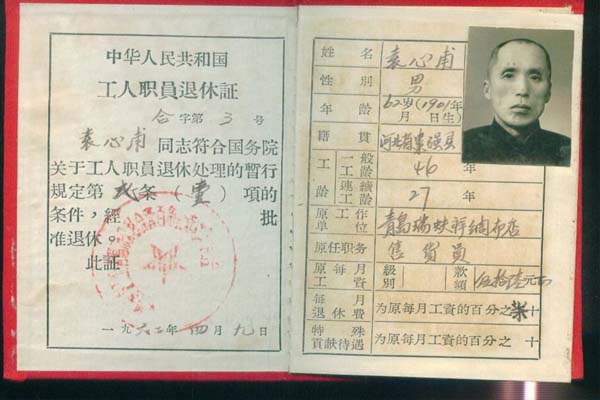 中华人民共和国
工人职员退休证
合字第3号
袁心甫同志符合国务院
关于工人职员退休处理的暂行
规定第弍条（壹）项的
条件，經批
准退休。
此証
一九六二年四月九日
姓名 袁心甫
性別 男
年龄 62岁(1901年
月日生)
籍貫 河北省枣强县
工龄 一般工龄 46年
連續工龄 27年
原工作单位 青島瑞蚨祥綢布店
原任职务 售貨員
原每月工資 級別 款額 伍拾壹元
每月退休費 为原每月工資的百分之柒十
特殊貢献待遇 为原每月工資的百分之十